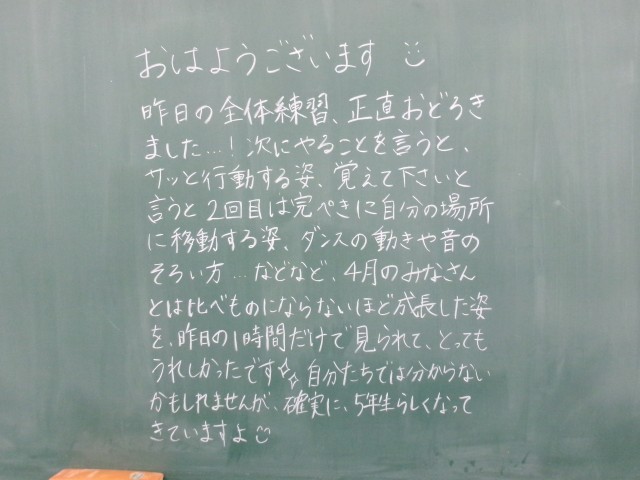 おはようございます
昨日の全体練習、正直おどろき
ました…！次にやることを言うと、
サッと行動する姿、覚えて下さいと
言うと2回目は完ぺきに自分の場所
に移動する姿、ダンスの動きや音の
そろい方…などなど、4月のみなさん
とは比べものにならないほど成長した姿
を、昨日の1時間だけで見られて、とっても
うれしかったです✨自分たちでは分からない
かもしれませんが、確実に、5年生らしくなって
きていますよ